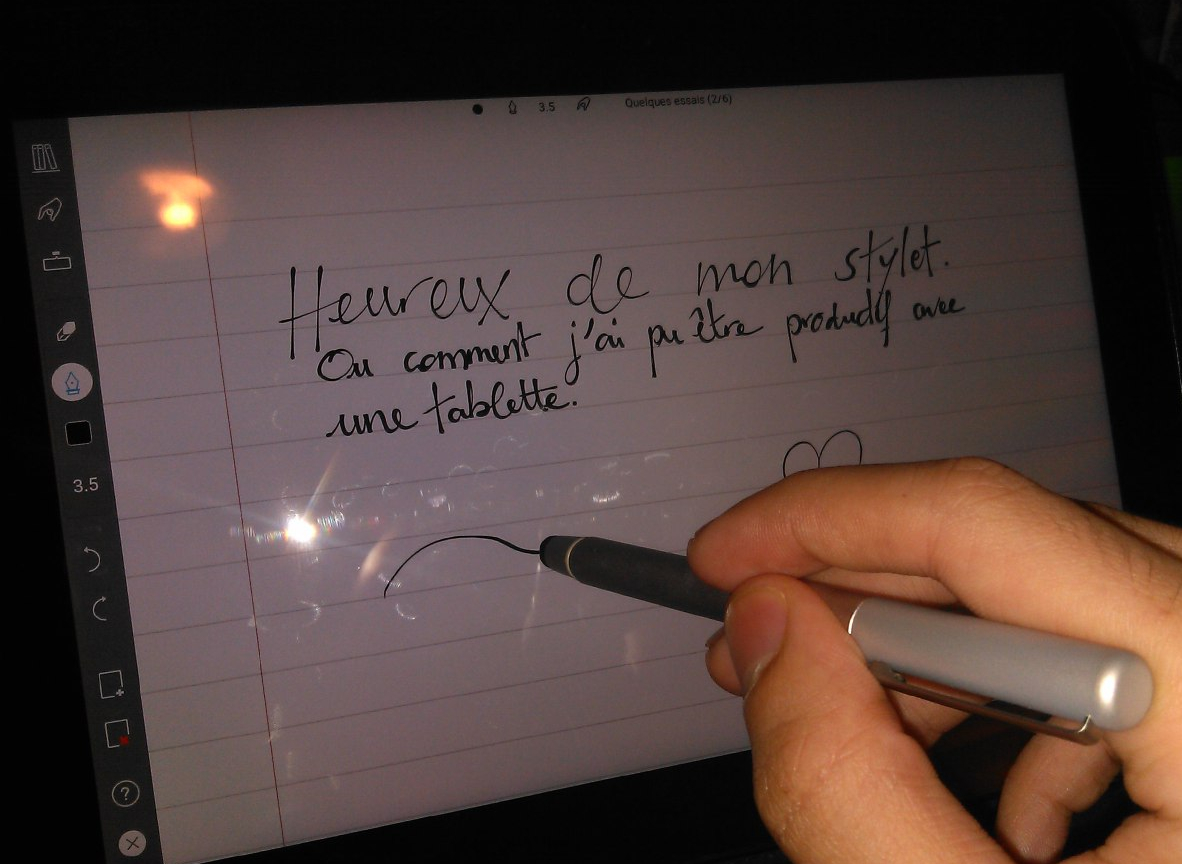 3.5 Quelques essais (2/6)
Heureux de mon stylet.
Ou comment j'ai pu être productif avec
une tablette.
3.5
?